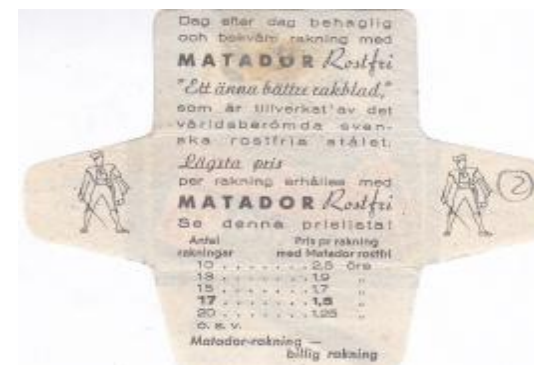 Dag efter dag behaglig
och bekväm rakning med
MATADOR Rostfri
"Ett ännu bättre rakblad,"
som är tillverkat av det
världsberömda sven-
ska rostfria stålet.
Lägsta pris
per rakning erhålles med
MATADOR Rostfri
Se denna prislista!
Antal Pris pr rakning
rakningar med Matador rostfri
10 . . . . . . . 2,5 öre
13 . . . . . . . 1,9 "
15 . . . . . . . 1,7 "
17 . . . . . . . 1,5 "
20 . . . . . . . 1,25 "
o. s. v.
Matador-rakning —
billig rakning
2